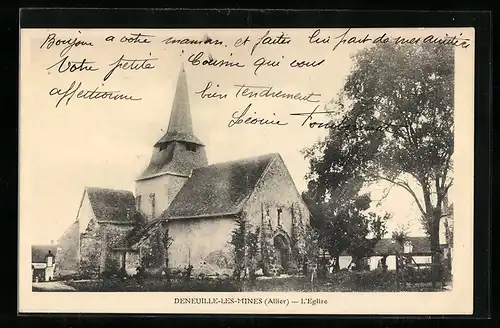 Bonjour a votre maman, et faites lui part de mes amitiés
Votre petite Cousine qui vous
affectionne bien tendrement
Léonie
DENEUILLE-LES-MINES (Allier) — L'Église